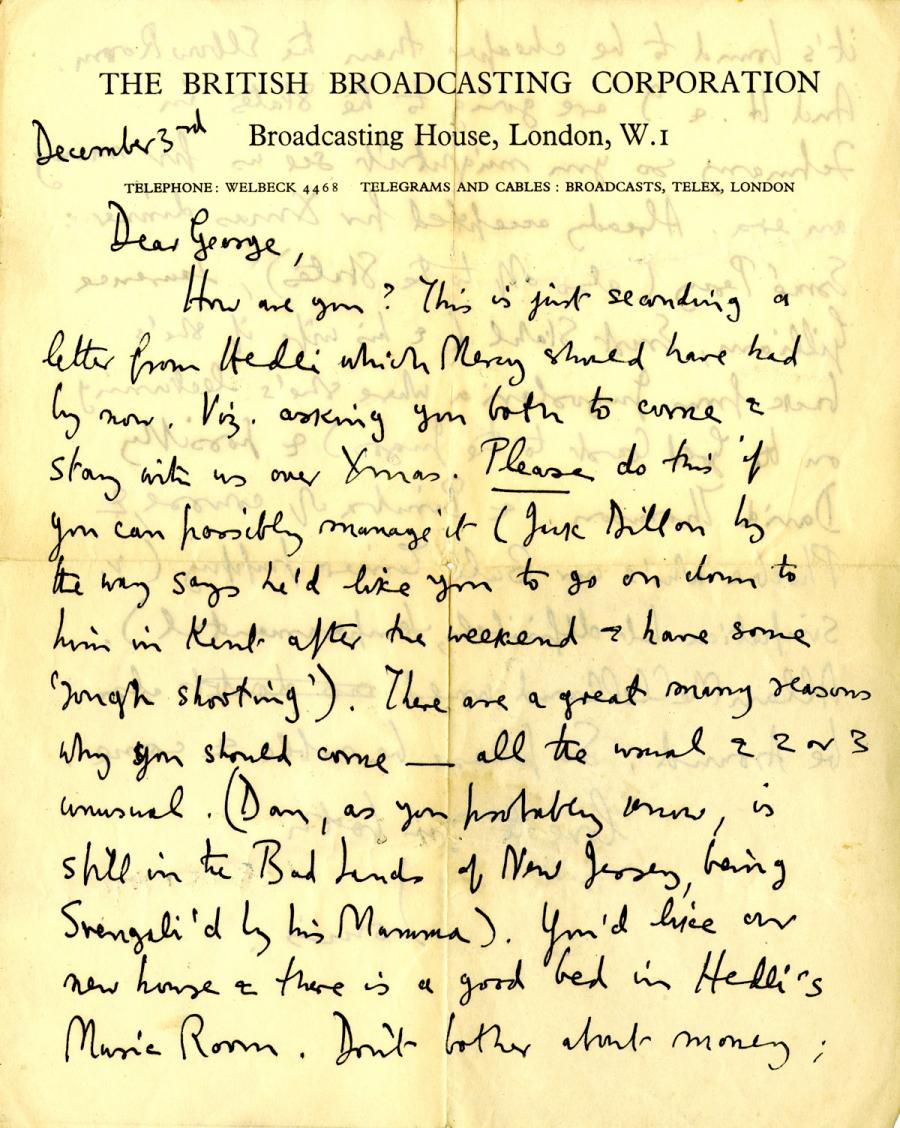 THE BRITISH BROADCASTING CORPORATION
Broadcasting House, London, W.1
December 3rd
TELEPHONE: WELBECK 4468 TELEGRAMS AND CABLES: BROADCASTS, TELEX, LONDON
Dear George,
How are you? This is just seconding a
letter from Hedli which Mercy should have had
by now. Viz. asking you both to come &
stay with us over Xmas. Please do this if
you can possibly manage it (Jack Dillon by
the way says he'd like you to go on down to
him in Kent after the weekend & have some
'rough shooting'). There are a great many reasons
why you should come — all the usual & 2 or 3
unusual. (Dan, as you probably know, is
still in the Bad Lands of New Jersey, being
Svengali'd by his Mamma). You'd like our
new house & there is a good bed in Hedli's
Music Room. Don't bother about money;